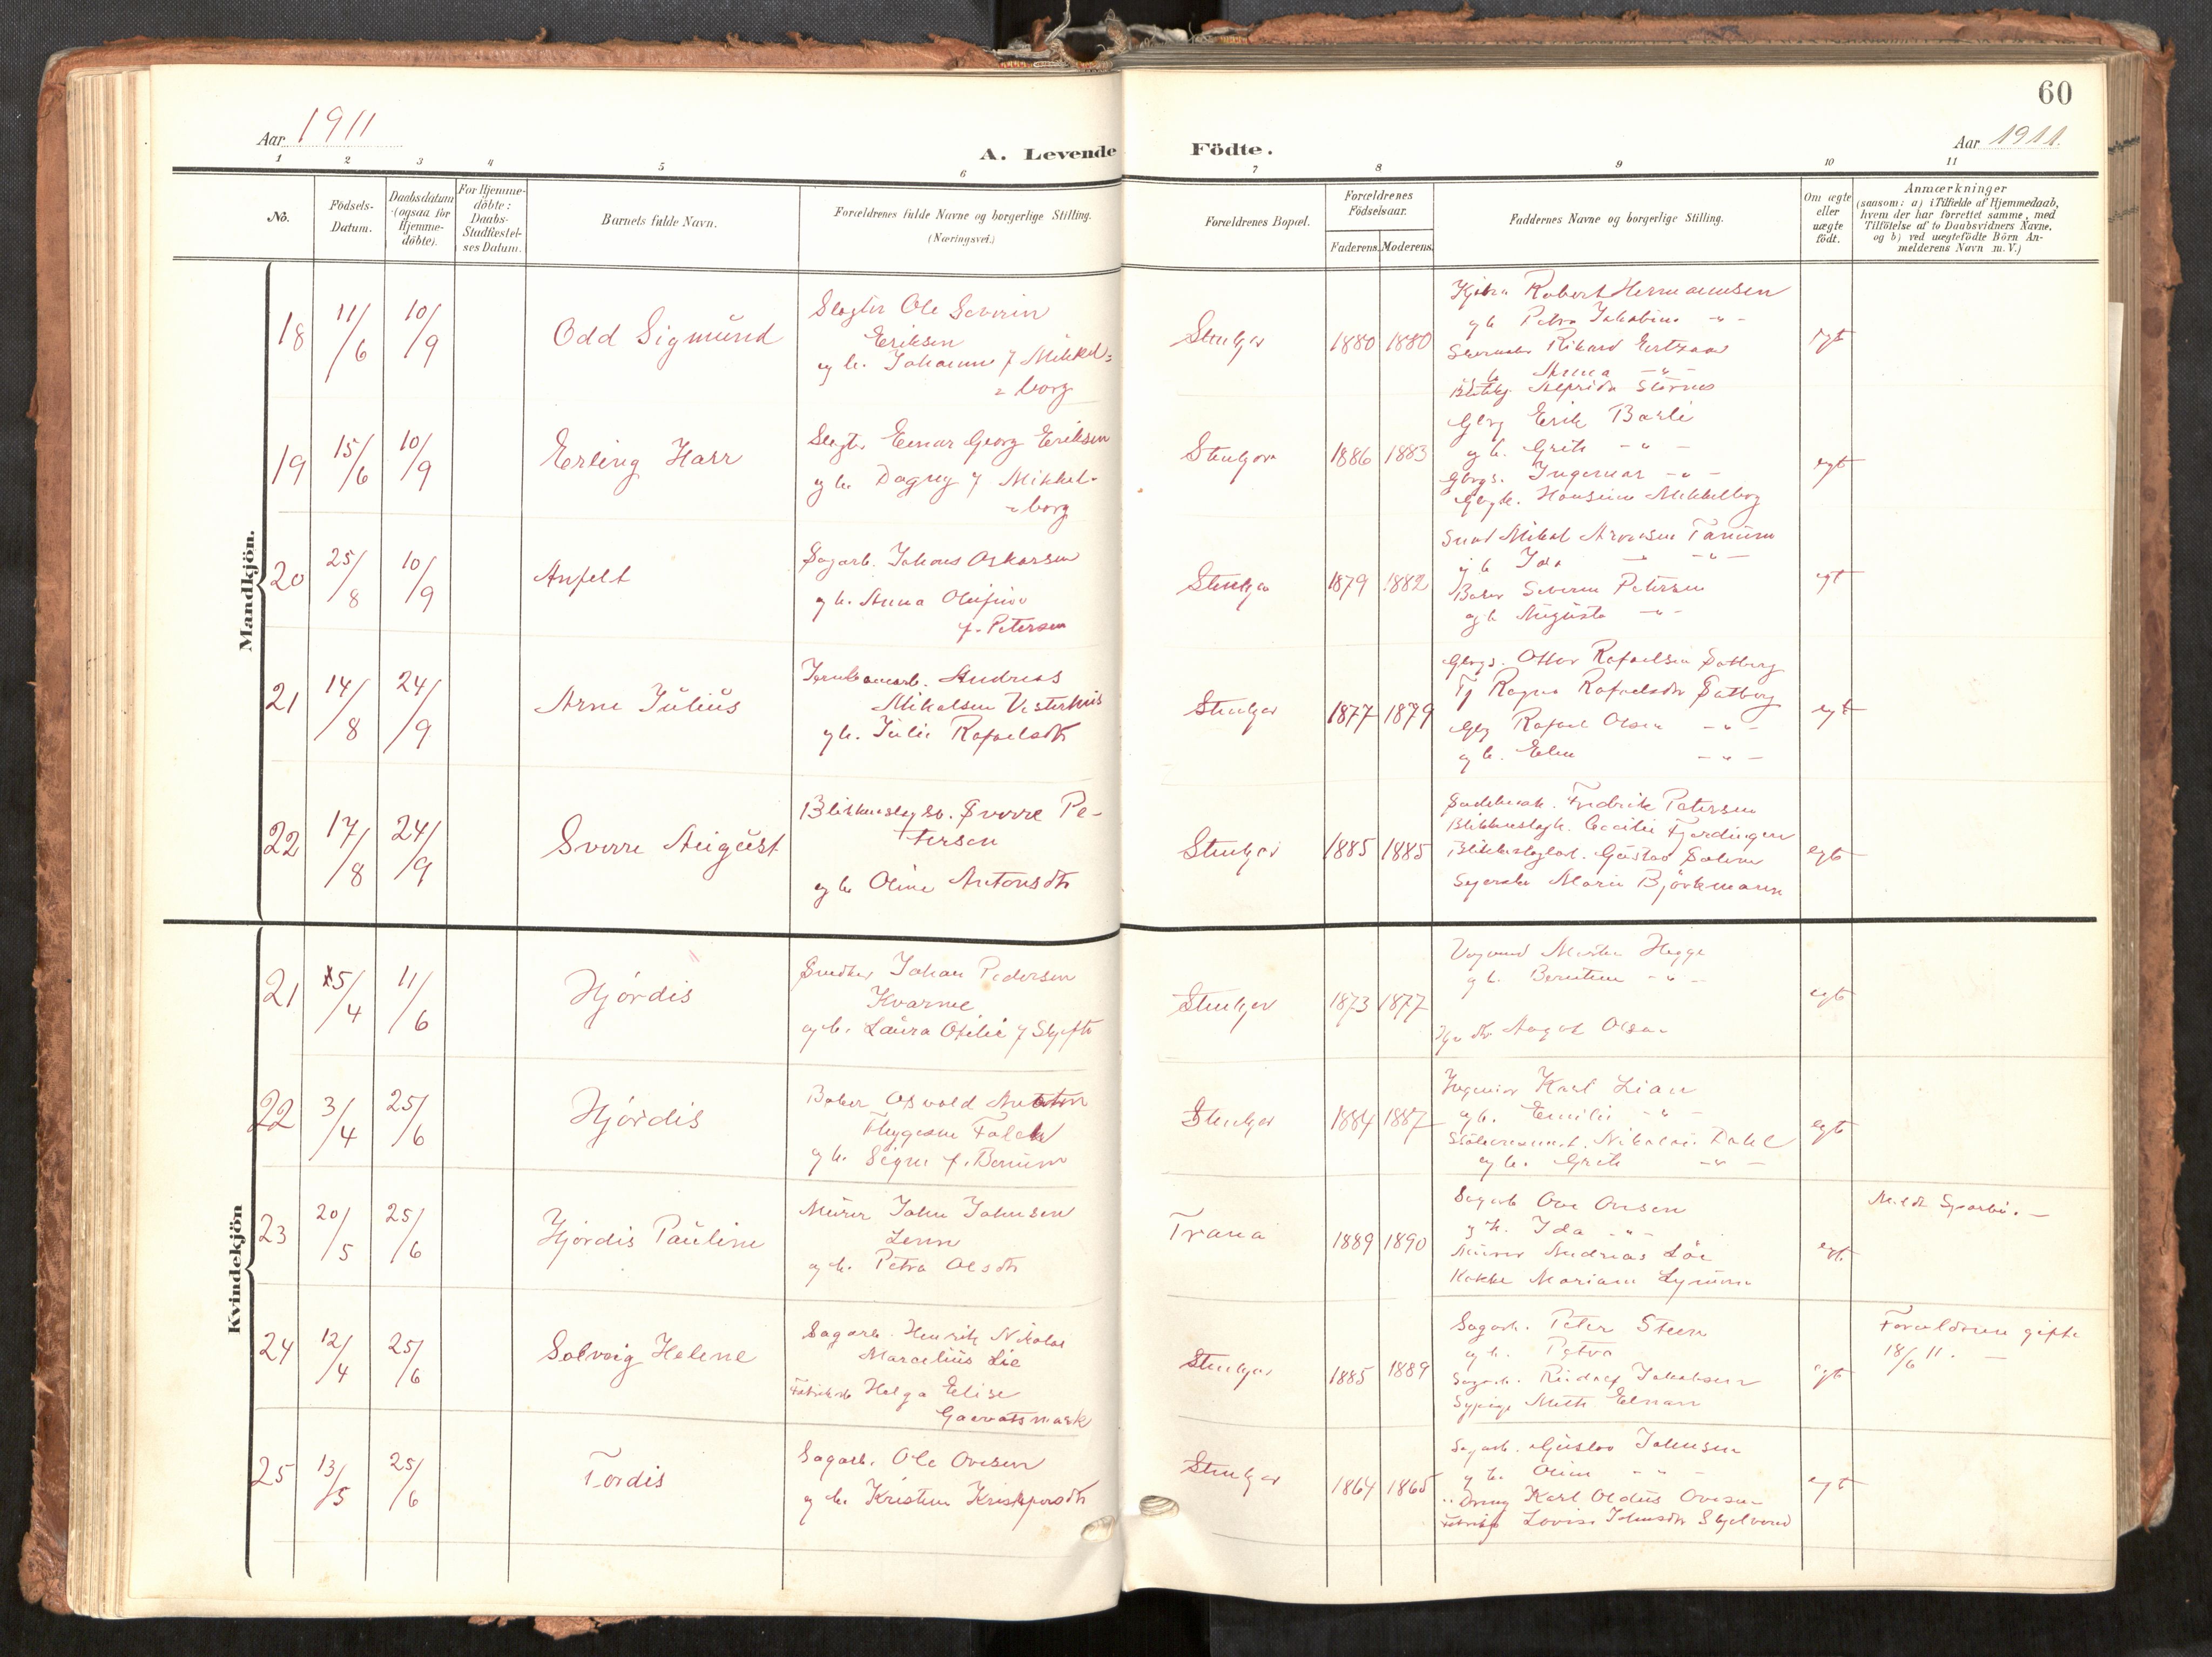 60
Aar 1911
A. Levende Födte.
Aar 1911.
1 2 3 4 5 6 7 8 9 10 11
No.
Födsels-Datum.
Daabsdatum (ogsaa for Hjemme-döbte).
For Hjemme-döbte: Daabs-Stadfæstel-ses Datum.
Barnets fulde Navn.
Forældrenes fulde Navne og borgerlige Stilling.
(Næringsvei.)
Forældrenes Bopæl.
Forældrenes Födselsaar.
Faderens. Moderens.
Faddernes Navne og borgerlige Stilling.
Om ægte eller uægte födt.
Anmærkninger
(saasom: a) i Tilfælde af Hjemmedaab,
hvem der har forrettet samme, med
Tilföielse af to Daabsvidners Navne,
og b) ved uægtefödte Börn An-
melderens Navn m. V.)
Mandkjön.
18 11/6 10/9 Odd Sigmund
Slagter Ole Severin
Eriksen
og h. Johanne f Mikkel=
=borg
Stenkjer 1880 1880
Robert Hermansen
og h Petra Jakobine -"-
Rikard
Anna -"-
egt
19 15/6 10/9 Erling Harr
Slagt. Einar Georg Eriksen
og h. Dagny f Mikkel-
=borg
Stenkjer 1886 1883
Erik Barli
og h. Grete -"-
Ingemar -"-
Mikkelborg
egt
20 25/8 10/9 Anfelt
Sagarb. Johans Oskarsen
og h. Anna
f. Petersen
Stenkjer 1879 1882
Mikal Tanum
og h Ida -"-
Baker Severin Petersen
og h Augusta -"-
egt
21 14/8 24/9 Arne Julius
Andreas
Mikalsen Vesterhus
og h. Julie Rafaelsdtr
Stenkjer 1877 1879
Otter Rafaelsen Satberg
Ragna Rafaelsdtr Satberg
Rafael Olsen -"-
og h. -"-
egt
22 17/8 24/9 Sverre August
Sverre Pe-
tersen
og h Oline Antonsdtr
Stenkjer 1885 1885
Fredrik Petersen
Cecilie Fjerdingen
Gustav
Marie Björkmann
egt
Kvindekjön
21 5/4 11/6 Hjördis
Snedker Johan Pedersen
Kvarme
og h. Laura Otilie f
Stenkjer 1873 1877
Hegge
og h. -"-
Olsen
egt
22 3/4 25/6 Hjördis
Baker Osvald
Thygesen Falck
og h. Signe f.
Stenkjer 1884 1887
Ingeniör Karl Lian
og h. Emilie -"-
Nikolai Dahl
og h. Grete -"-
egt
23 20/5 25/6 Hjördis Pauline
Murer John Johnsen
og h. Petra Olsdtr
Trana 1889 1890
Sagarb Ove Ovesen
og h. Ida -"-
Murer Andreas Löe
Kokke
egt.
Meldt Sparbu. —
24 12/4 25/6 Solveig Helene
Sagarb. Henrik Nikolai
Marcelius Lie
Helga Elise
Stenkjer 1885 1889
Sagarb. Peter Steen
og h. Petra
Sagarb. Rudolf Jakobsen
egt
Forældrene gifte
18/6 11. —
25 13/5 25/6 Tordis
Sagarb. Ole Ovesen
og h. Kristine
Stenkjer 1864 1865
Sagarb. Gustav Johnsen
og h. Oline -"-
Karl Oldus Ovesen
Lovise Johnsdtr
egt